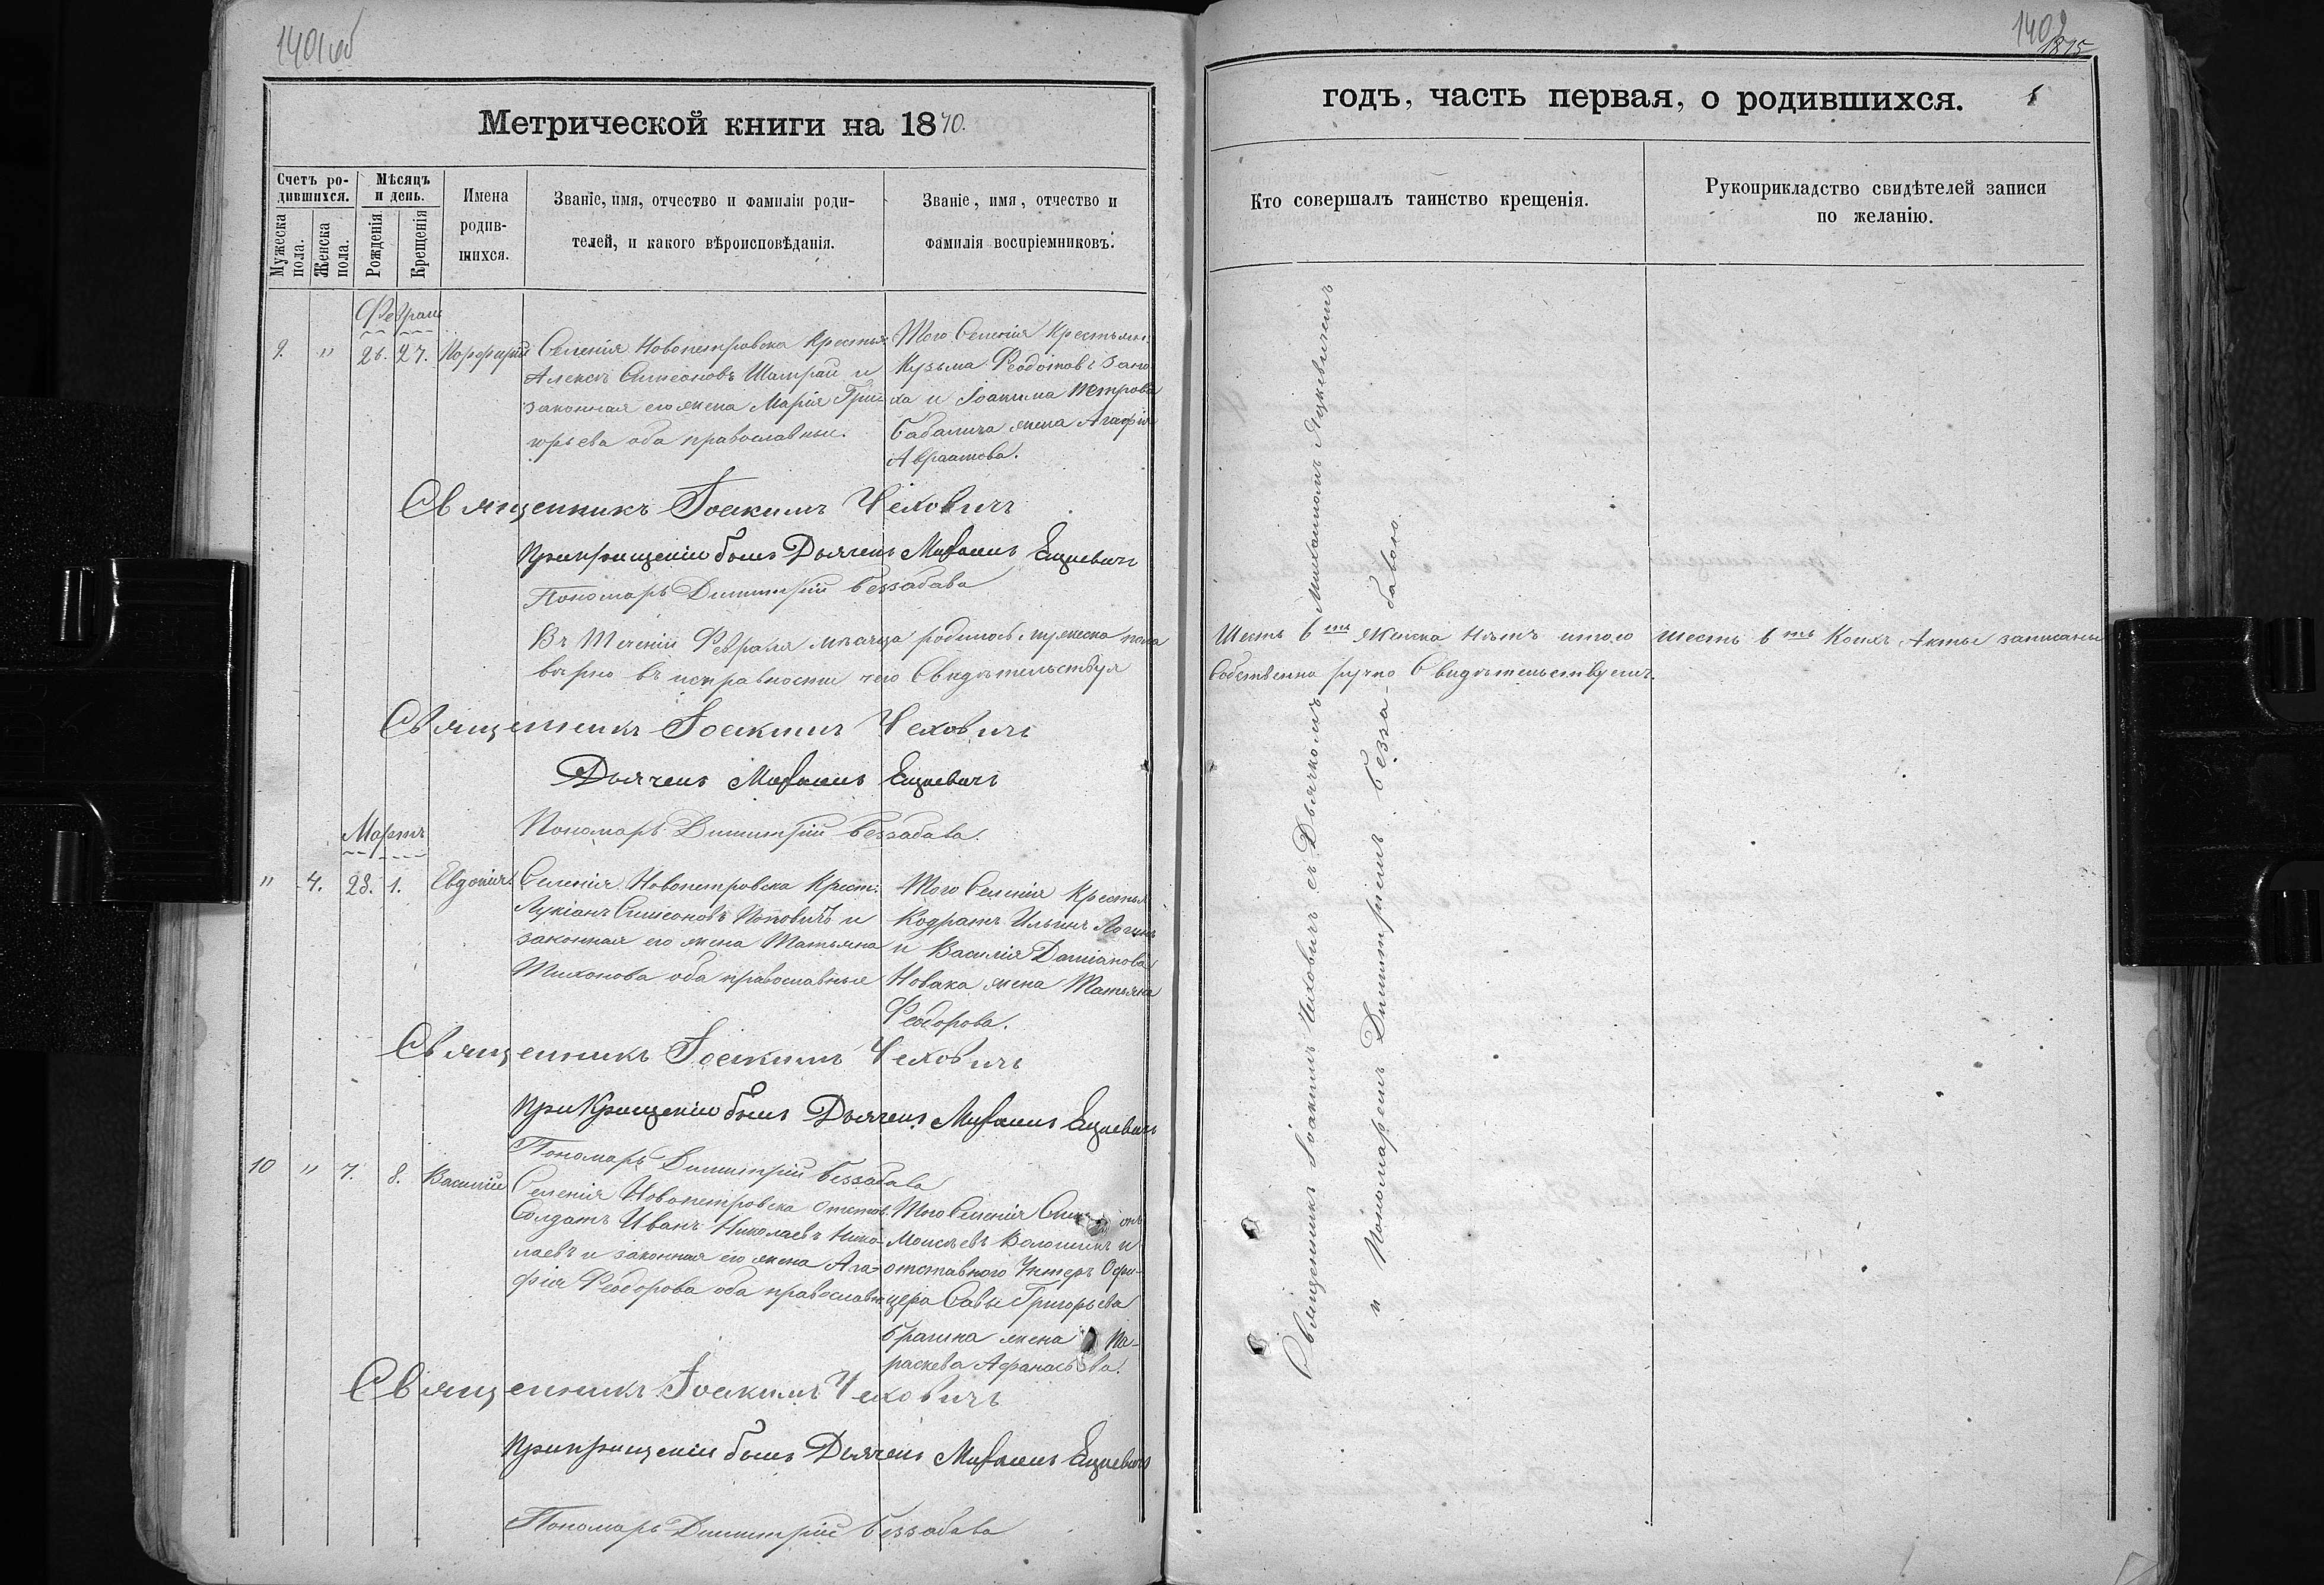 1401об
Метрической книги на 1870.
Счетъ ро-
дившихся.
Мѣсяцъ
и день.
Мужеска
пола.
Женска
пола.
Рожденія
Крещенія
Имена
родив-
шихся.
Званіе, имя, отчество и фамилія роди-
телей, и какого вѣроисповѣданія.
Званіе, имя, отчество и
фамилія воспріемниковъ.
Февраль
9. " 26. 27. Порфирій
Селенія Новопетровска Крестья:
Алексѣ Симеоновъ Шамрай и
законная его жена Марія Гри-
горьева оба православные.
Того Селенія Крестьян:
Кузьма Феодотовъ
и Іоакима Петрова
жена Агафія
Авраамова.
Священникъ Іоакимъ Чеховичъ
При крещеніи былъ Дьячекъ Михаилъ Яцкевичъ
Пономарь Димитрій Беззабава
Въ теченіи Февраля мѣсяца родилось мужеска пола
вѣрно въ исправности чего Свидѣтельствуя
Священникъ Іоакимъ Чеховичъ
Дьячекъ Михаилъ Яцкевичъ
Пономарь Димитрій Беззабава.
Мартъ
" 4. 28. 1. Евдокія
Селенія Новопетровска Крест:
Лукіанъ Симеоновъ Поповичъ и
законная его жена Татьяна
Тихонова оба православные
Того Селенія Крестья
Кодратъ Ильинъ
и Василія Даміанова
Новака жена Татьяна
Феодорова.
Священникъ Іоакимъ Чеховичъ
При Крещеніи былъ Дьячекъ Михаилъ Яцкевичъ
Пономарь Димитрій Беззабава
10 " 7. 8. Василій
Селенія Новопетровска отстав.
Солдатъ Иванъ Николаевъ Нико-
лаевъ и законная его жена Ага-
фія Феодорова оба православн
Того Селенія
Моисѣевъ Волошинъ и
отставного Унтеръ Офи-
цера Савы Григорьева
Брагина жена Па-
раскева Афанасьева.
Священникъ Іоакимъ Чеховичъ
При крещеніи былъ Дьячекъ Михаилъ Яцкевичъ
Пономарь Димитрій Беззабава
1402
1875
годъ, часть первая, о родившихся.
Кто совершалъ таинство крещенія.
Рукоприкладство свидѣтелей записи
по желанію.
Шесть 6ть Женска нѣтъ итого шесть 6ть Коихъ Акты записаны
Собственно ручно Свидѣтельствуемъ.
Священникъ Іоакимъ Чеховичъ съ Дьячкомъ Михаиломъ Яцкевичемъ
и Пономаремъ Димитріемъ Безза-бавою.